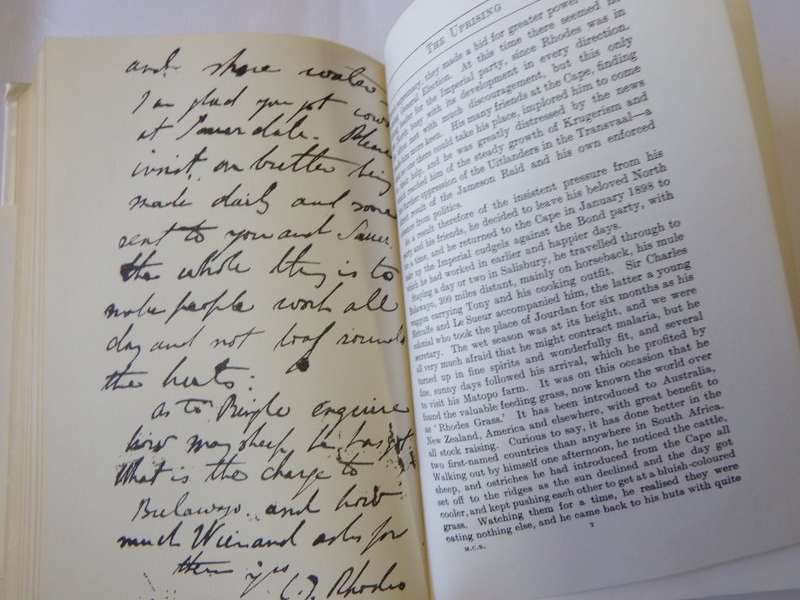 and share water-
I am glad you got cows
at Sauerdale. Please
insist on butter being
made daily and some
sent to you and Sauer.
the whole thing is to
make people work all
day and not loaf round
the huts:
as to Pringle enquire
how many sheep he has got
What is the charge to
Bulawayo and how
much Wienand asks for
them yrs
C J Rhodes
THE UPRISING
they made a bid for greater power
Election. At this time there seemed
for the Imperial party, since Rhodes was in
with its development in every direction,
met with much discouragement, but this only
keen. His many friends at the Cape, finding
there could take his place, implored him to come
help, and he was greatly distressed by the news
reached him of the steady growth of Krugerism and
further oppression of the Uitlanders in the Transvaal—a
result of the Jameson Raid and his own enforced
from politics.
a result therefore of the insistent pressure from his
and his friends, he decided to leave his beloved North
a time, and he returned to the Cape in January 1898 to
up the Imperial cudgels against the Bond party, with
he had worked in earlier and happier days.
Staying a day or two in Salisbury, he travelled through to
Bulawayo, 300 miles distant, mainly on horseback, his mule
waggon carrying Tony and his cooking outfit. Sir Charles
Metcalfe and Le Sueur accompanied him, the latter a young
colonial who took the place of Jourdan for six months as his
secretary. The wet season was at its height, and we were
all very much afraid that he might contract malaria, but he
turned up in fine spirits and wonderfully fit, and several
fine, sunny days followed his arrival, which he profited by
to visit his Matopo farm. It was on this occasion that he
found the valuable feeding grass, now known the world over
as 'Rhodes Grass.' It has been introduced to Australia,
New Zealand, America and elsewhere, with great benefit to
all stock raising. Curious to say, it has done better in the
two first-named countries than anywhere in South Africa.
Walking out by himself one afternoon, he noticed the cattle,
sheep, and ostriches he had introduced from the Cape all
set off to the ridges as the sun declined and the day got
cooler, and kept pushing each other to get at a bluish-coloured
grass. Watching them for a time, he realised they were
eating nothing else, and he came back to his huts with quite
M.C.R. Y